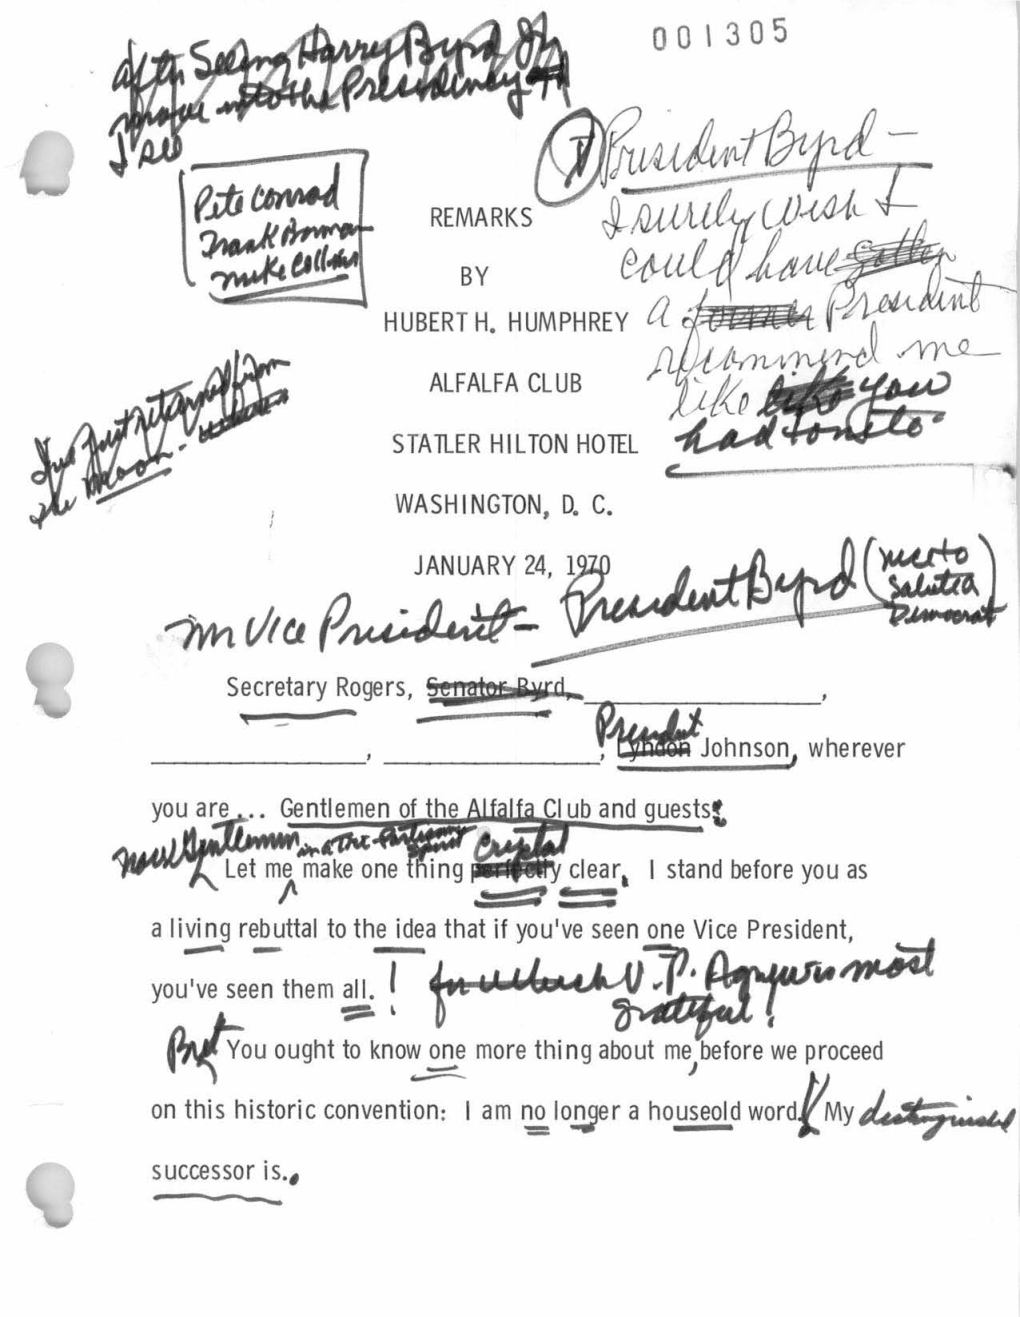 001305
after Seeing Harry Byrd
move into the Presidency
I see
President Byrd –
Pete Conrad
Frank Borman
Mike Collins
I surely wish I
could have gotten
a former President
recommend me
like like you
had to
REMARKS
BY
HUBERT H. HUMPHREY
ALFALFA CLUB
STATLER HILTON HOTEL
WASHINGTON, D. C.
JANUARY 24, 1970
I've Just returned from
the Moon -
Mr Vice President – President Byrd (
Salute a
Democrat)
Secretary Rogers, Senator Byrd, ____________,
____________, ____________, President Lyndon Johnson, wherever
you are ... Gentlemen of the Alfalfa Club and guests:
Now Gentlemen in a Partisan
Spirit
Crystal
Let me make one thing perfectly clear. I stand before you as
a living rebuttal to the idea that if you've seen one Vice President,
you've seen them all. ! for which V.P. Agnew is most
grateful!
But You ought to know one more thing about me, before we proceed
on this historic convention: I am no longer a houseold word. My distinguished
successor is.